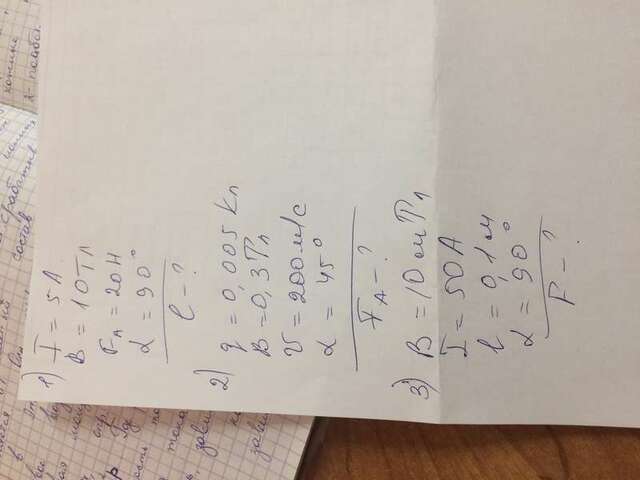 сработив
состав
1) I = 5 А
B = 10 Тл
FА = 20 Н
α = 90°
l - ?
2) q = 0,005 Кл
B = 0,3 Тл
V = 200 м/с
α = 45°
FА - ?
3) B = 10 мТл
I = 50 А
l = 0,1 м
α = 90°
F - ?